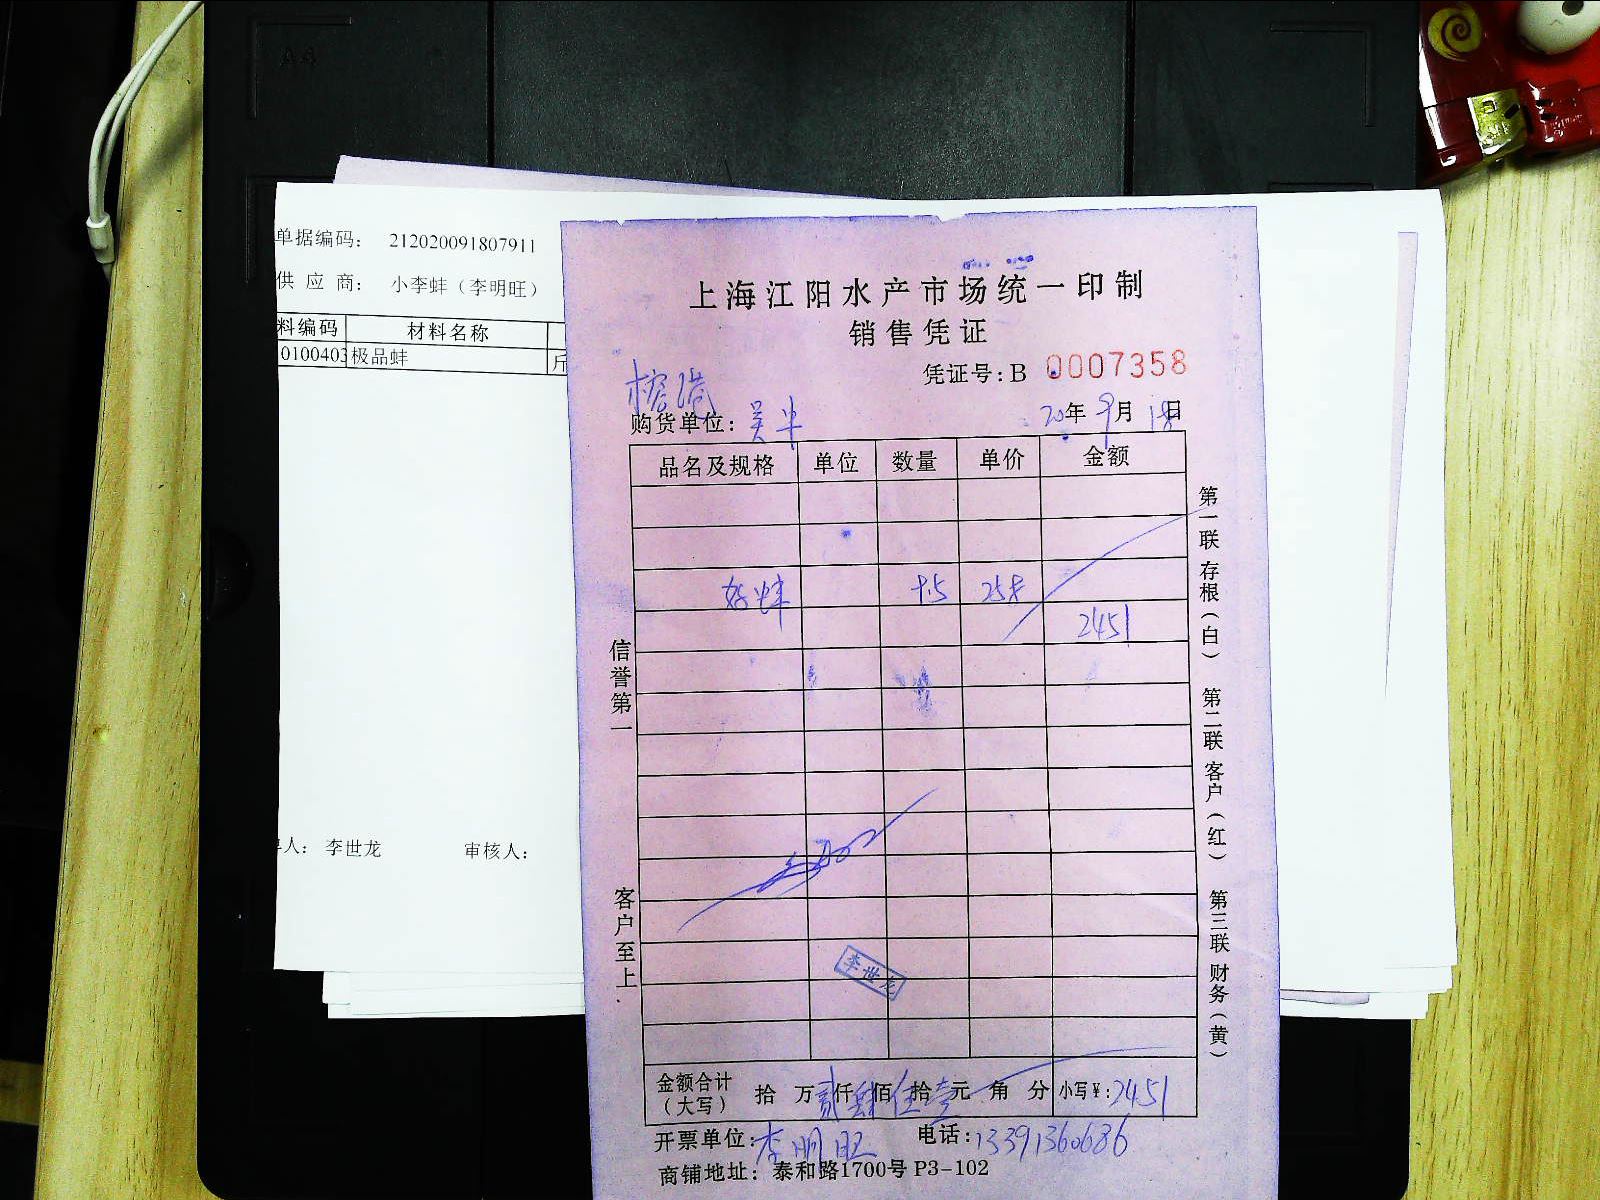 A4
单据编码： 212020091807911
供 应 商： 小李蚌（李明旺）
料编码 材料名称
0100403 极品蚌 斤
李世龙 审核人：
上海江阳水产市场统一印制
销售凭证
凭证号：B 0007358
榕港
购货单位： 20年 9月 18日
品名及规格 单位 数量 单价 金额
好蚌
2451
信誉第一
客户至上
第一联 存根（白） 第二联 客户（红） 第三联 财务（黄）
李世龙
金额合计（大写） 拾 万 贰仟 肆佰 伍拾 壹元 角 分 小写¥：2451
开票单位：李明旺 电话：13391360686
商铺地址：泰和路1700号 P3-102